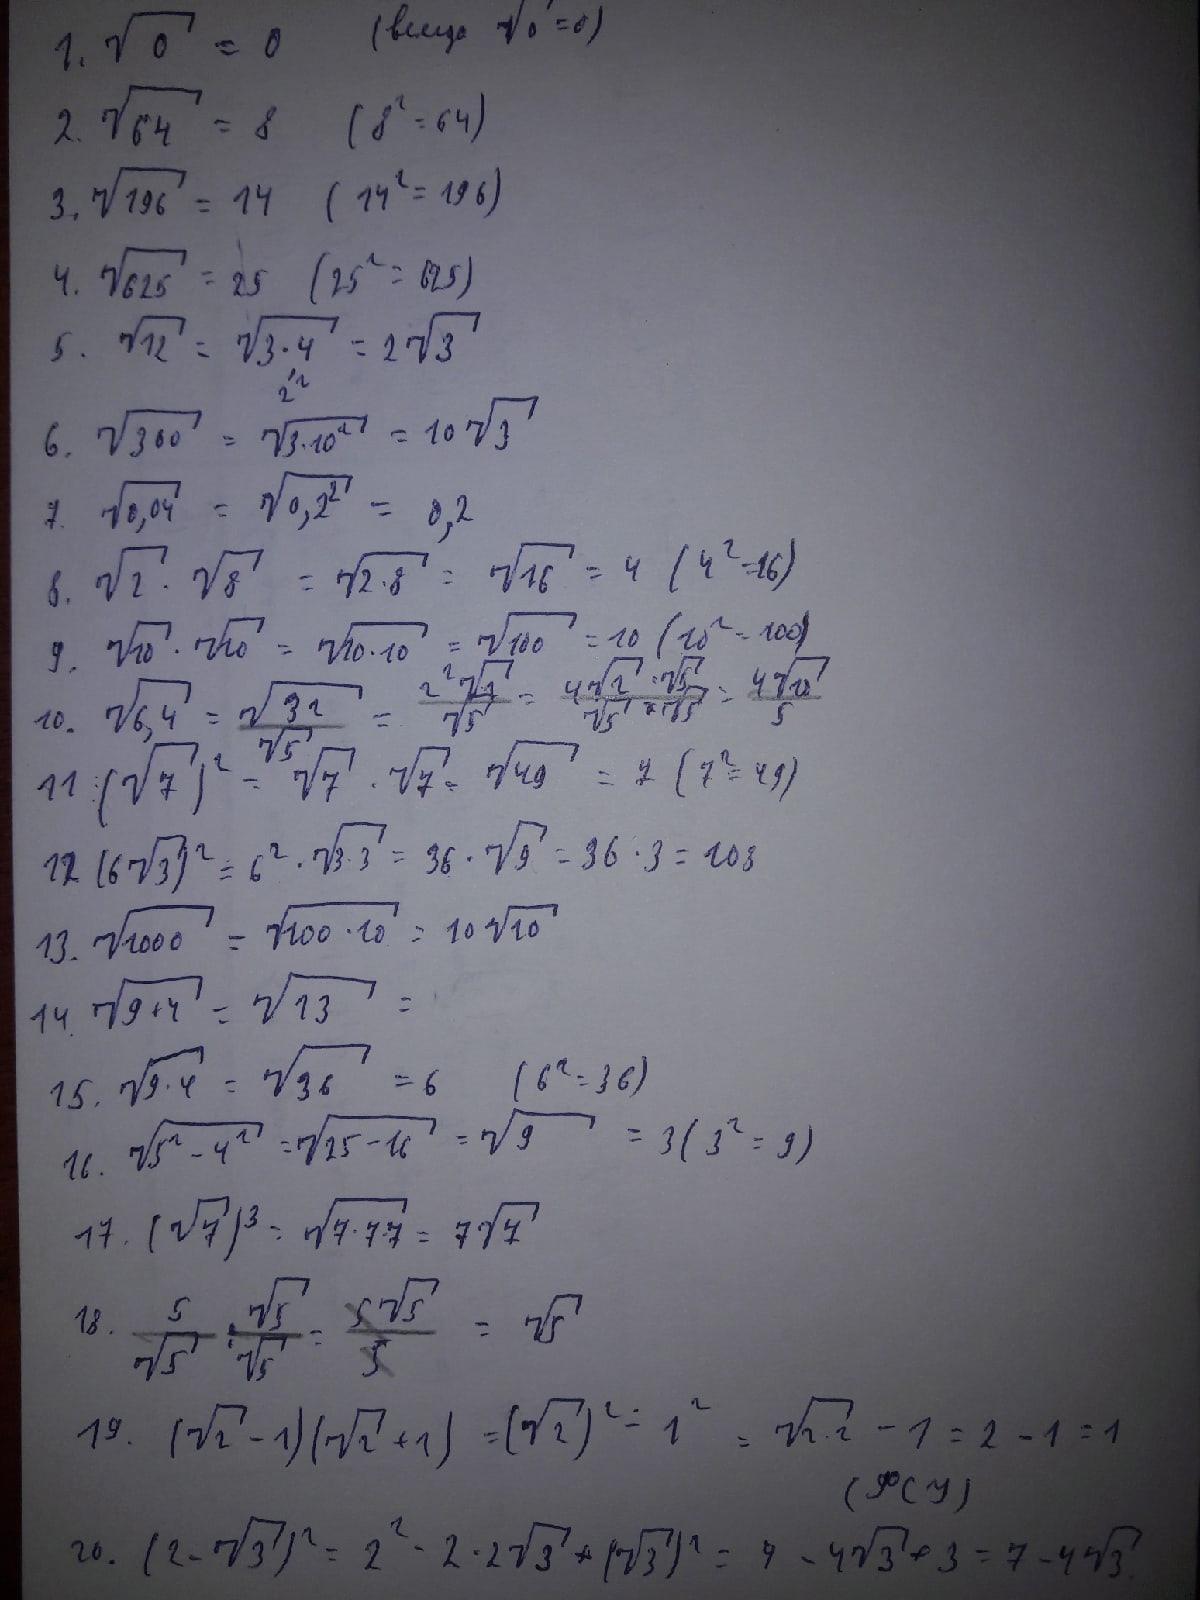 1. √0 = 0 (всегда √0 = 0)
2. √64 = 8 (8² = 64)
3. √196 = 14 (14² = 196)
4. √625 = 25 (25² = 625)
5. √12 = √3·4 = 2√3
2²
6. √300 = √3·10² = 10√3
7. √0,04 = √0,2² = 0,2
8. √2 · √8 = √2·8 = √16 = 4 (4² = 16)
9. √10 · √10 = √10·10 = √100 = 10 (10² = 100)
10. √6,4 = √32/√5 = 2²√2/√5 = 4√2·√5/√5·√5 = 4√10/5
11. (√7)² = √7 · √7 = √49 = 7 (7² = 49)
12 (6√3)² = 6² · √3·3 = 36 · √9 = 36 · 3 = 108
13. √1000 = √100·10 = 10√10
14. √9+4 = √13 =
15. √9·4 = √36 = 6 (6² = 36)
16. √5²-4² = √25-16 = √9 = 3 (3² = 9)
17. (√7)³ = √7·7·7 = 7√7
18. 5/√5 · √5/√5 = 5√5/5 = √5
19. (√2 - 1)(√2 + 1) = (√2)² - 1² = √2·2 - 1 = 2 - 1 = 1
(ФСУ)
20. (2 - √3)² = 2² - 2·2√3 + (√3)² = 4 - 4√3 + 3 = 7 - 4√3